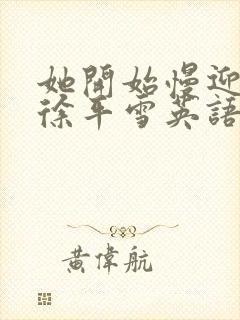 她開始慢迎
徐平雪英語
黃偉航